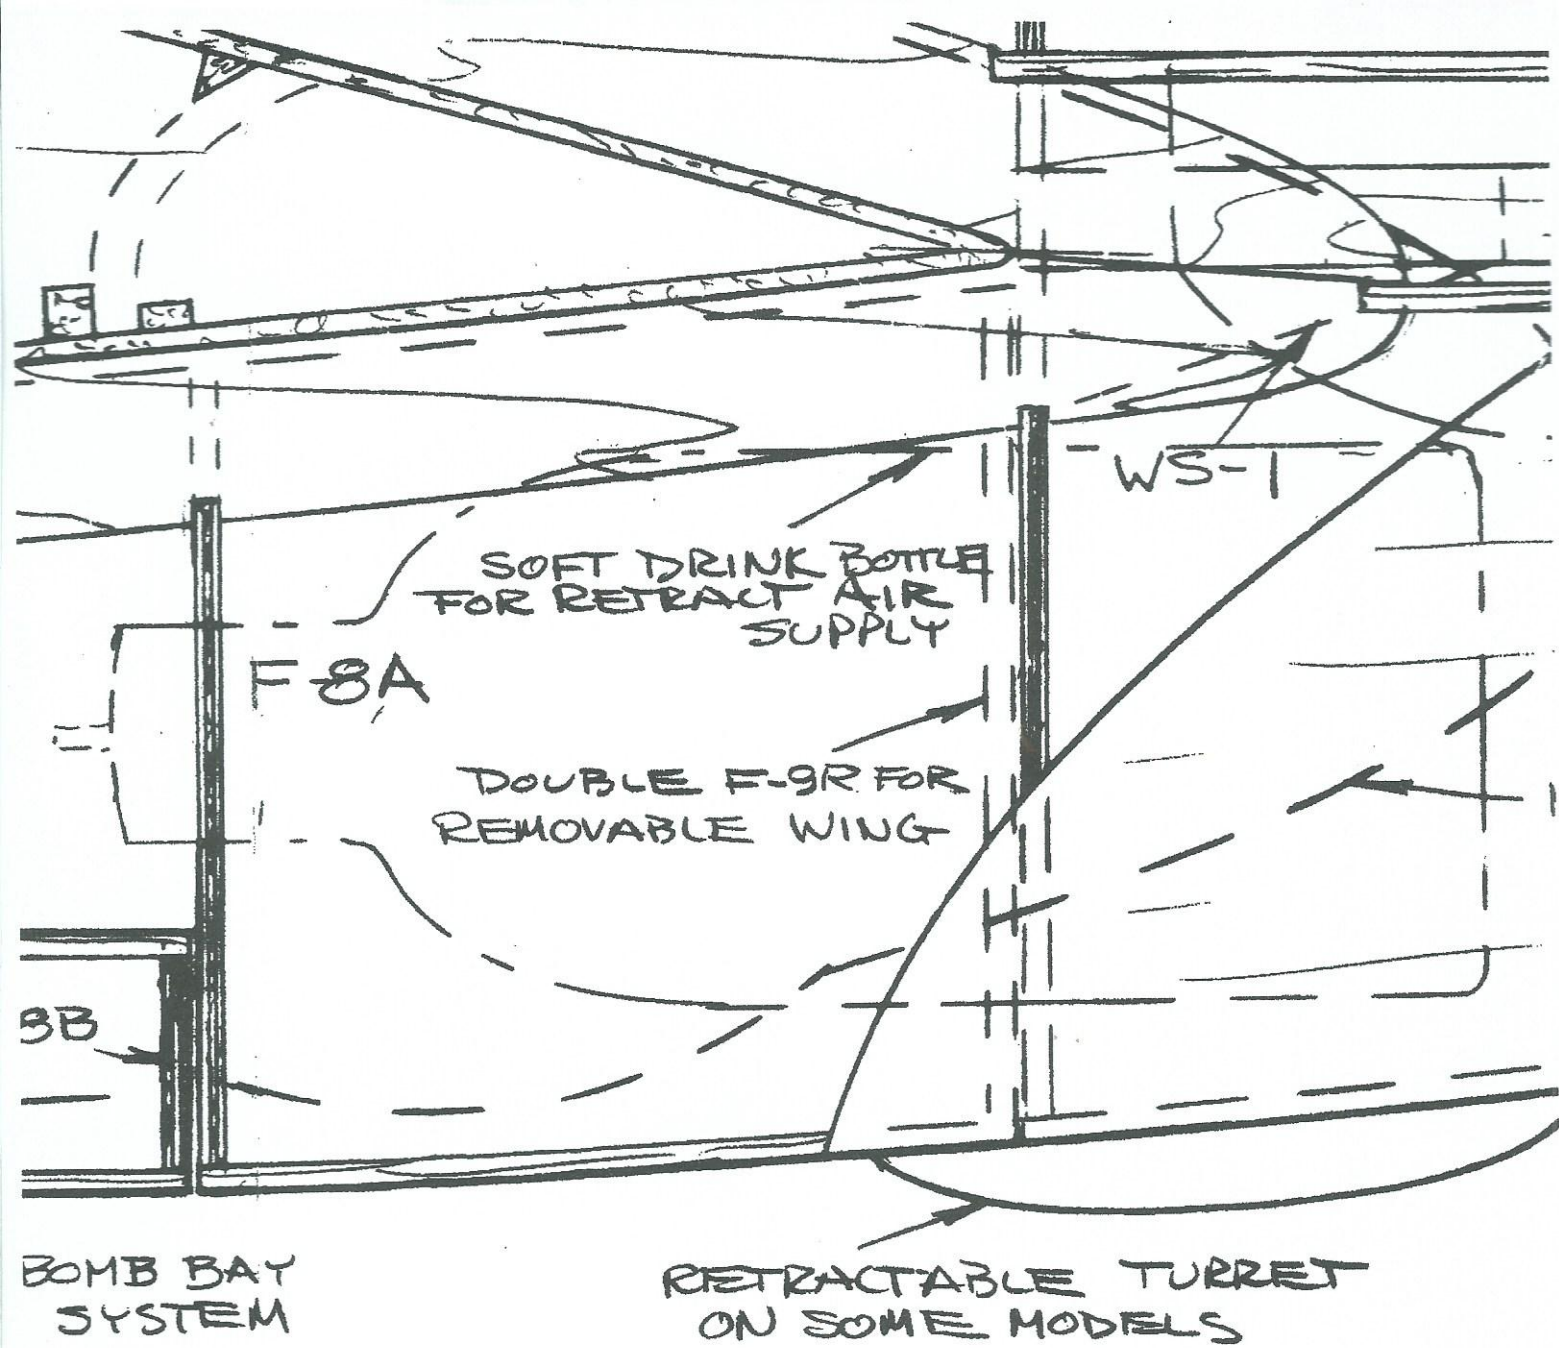 WS-1
SOFT DRINK BOTTLE
FOR RETRACT AIR
SUPPLY
F-8A
DOUBLE F-9R FOR
REMOVABLE WING
BOMB BAY
SYSTEM
RETRACTABLE TURRET
ON SOME MODELS